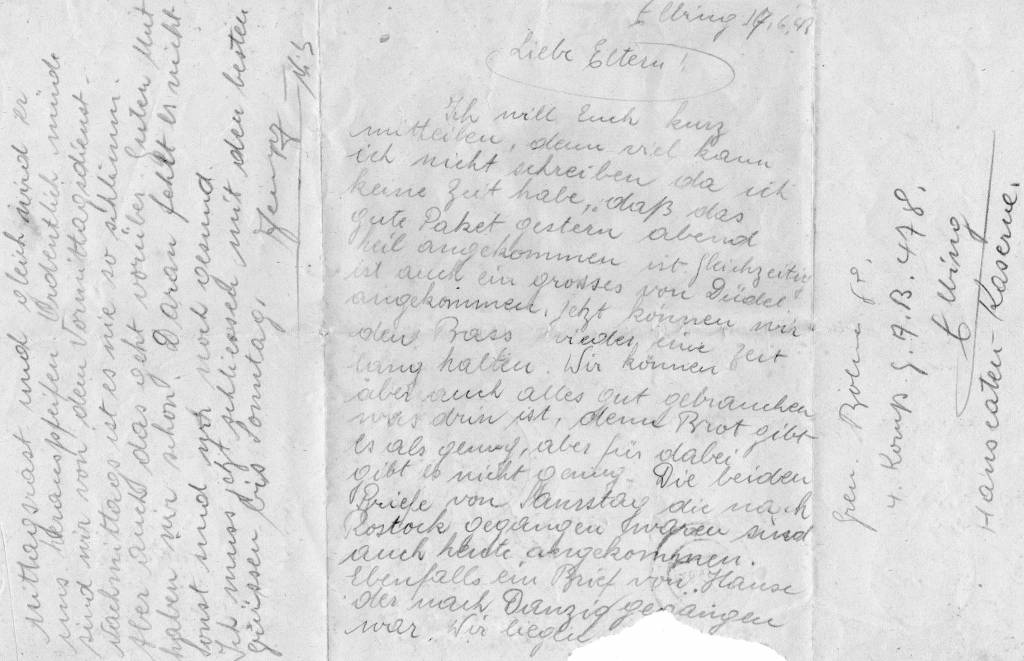 Elbing 17.6.43
Liebe Eltern!
Ich will Euch kurz
mitteilen, denn viel kann
ich nicht schreiben da ich
keine Zeit habe, daß das
gute Paket gestern abend
heil angekommen ist. Gleichzeitig
ist auch ein grosses von Düdel
angekommen. Jetzt können wir
den Bass wieder eine Zeit
lang halten. Wir können
aber auch alles gut gebrauchen
was drin ist, denn Brot gibt
es als genug, aber für dabei
gibt es nicht genug. Die beiden
Briefe von Samstag die nach
Rostock gegangen waren sind
auch heute angekommen.
Ebenfalls ein Brief von Hause
der nach Danzig gegangen
war. Wir liegen
Mittagsrast und gleich wird er
uns herauspfeifen. Ordentlich müde
sind wir von dem Vormittagsdienst.
Nachmittags ist es nie so schlimm.
Aber auch das geht vorüber. Guten Mut
haben wir schon. Daran fehlt es nicht
sonst sind noch gesund.
Ich muss jetzt schliessen mit den besten
Grüssen bis Sonntag,
Gren.
4. Komp. G.A.B. 478.
Elbing
Hanseaten-Kaserne.